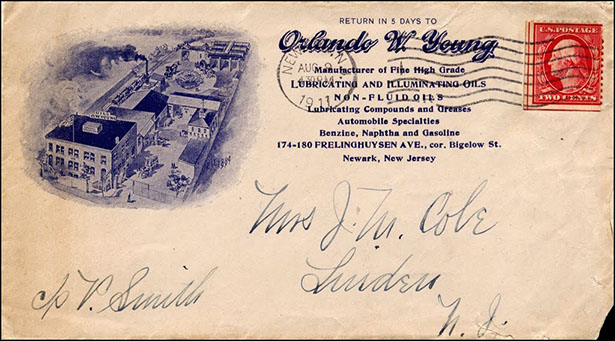 RETURN IN 5 DAYS TO
Orlando W. Young,
Manufacturer of Fine High Grade
LUBRICATING AND ILLUMINATING OILS
NON-FLUID OILS
Lubricating Compounds and Greases
Automobile Specialties
Benzine, Naphtha and Gasoline
174-180 FRELINGHUYSEN AVE., cor. Bigelow St.
Newark, New Jersey
AUG 9
1911
U.S. POSTAGE
TWO CENTS
Mrs J. M. Cole
Linden
N. J.
c/o V. Smith